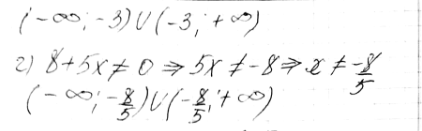 (-∞; -3) ∪ (-3; +∞)
г) 8+5x ≠ 0 ⇒ 5x ≠ -8 ⇒ x ≠ -8/5
(-∞; -8/5) ∪ (-8/5; +∞)